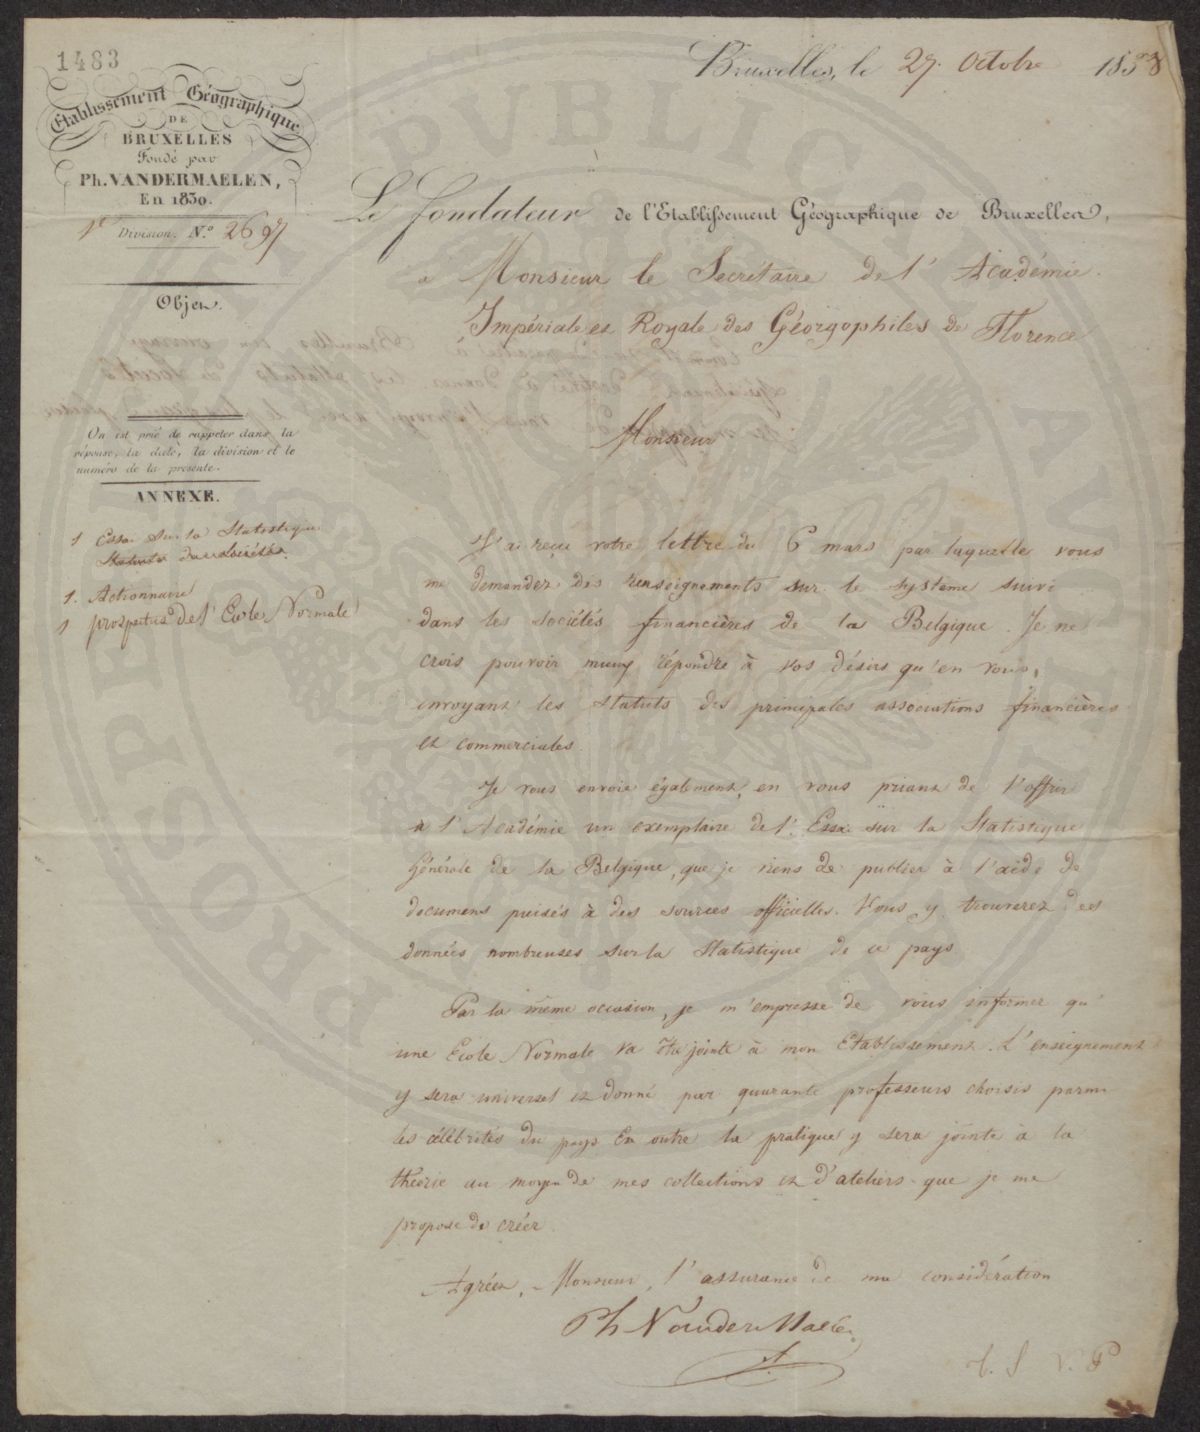 1483
Bruxelles, le 27. Octobre 1838
Etablissement Géographique
DE
BRUXELLES
Fondé par
Ph. VANDERMAELEN,
En 1830.
1e Division. N.o 2697
Le fondateur de l'Etablissement Géographique de Bruxelles,
a Monsieur le Secrétaire de l' Académie
Impériale et Royale des Géorgophiles de Florence
Objet.
On est prié de rappeler dans la
réponse, la date, la division et le
numéro de la présente.
ANNEXE.
1 Essai Sur la Statistique
Statuts des Sociétés.
1. Actionnaire
1 prospectus de l' Ecole Normale
Monsieur
J'ai reçu votre lettre du 6 mars par laquelle vous
me demandez des renseignements sur le système suivi
dans les Sociétés financières de la Belgique. Je ne
crois pouvoir mieux répondre à vos désirs qu'en vous
envoyant les statuts des principales associations financières
et commerciales.
Je vous envoie également, en vous priant de l'offrir
à l'Académie un exemplaire de l' Essai sur la Statistique
Générale de la Belgique, que je viens de publier à l'aide de
documens puisés à des sources officielles. Vous y trouverez des
données nombreuses sur la Statistique de ce pays
Par la même occasion, je m'empresse de vous informer qu'
une Ecole Normale va être jointe à mon Etablissement. L'enseignement
y sera universel et donné par quarante professeurs choisis parmi
les célébrités du pays En outre la pratique y sera jointe à la
théorie au moyen de mes collections et d'ateliers que je me
propose de créer.
Agréez, Monsieur, l'assurance de ma considération
Ph Vander Maelen
t. S. V. P
PROSPERITAS PVBLICA